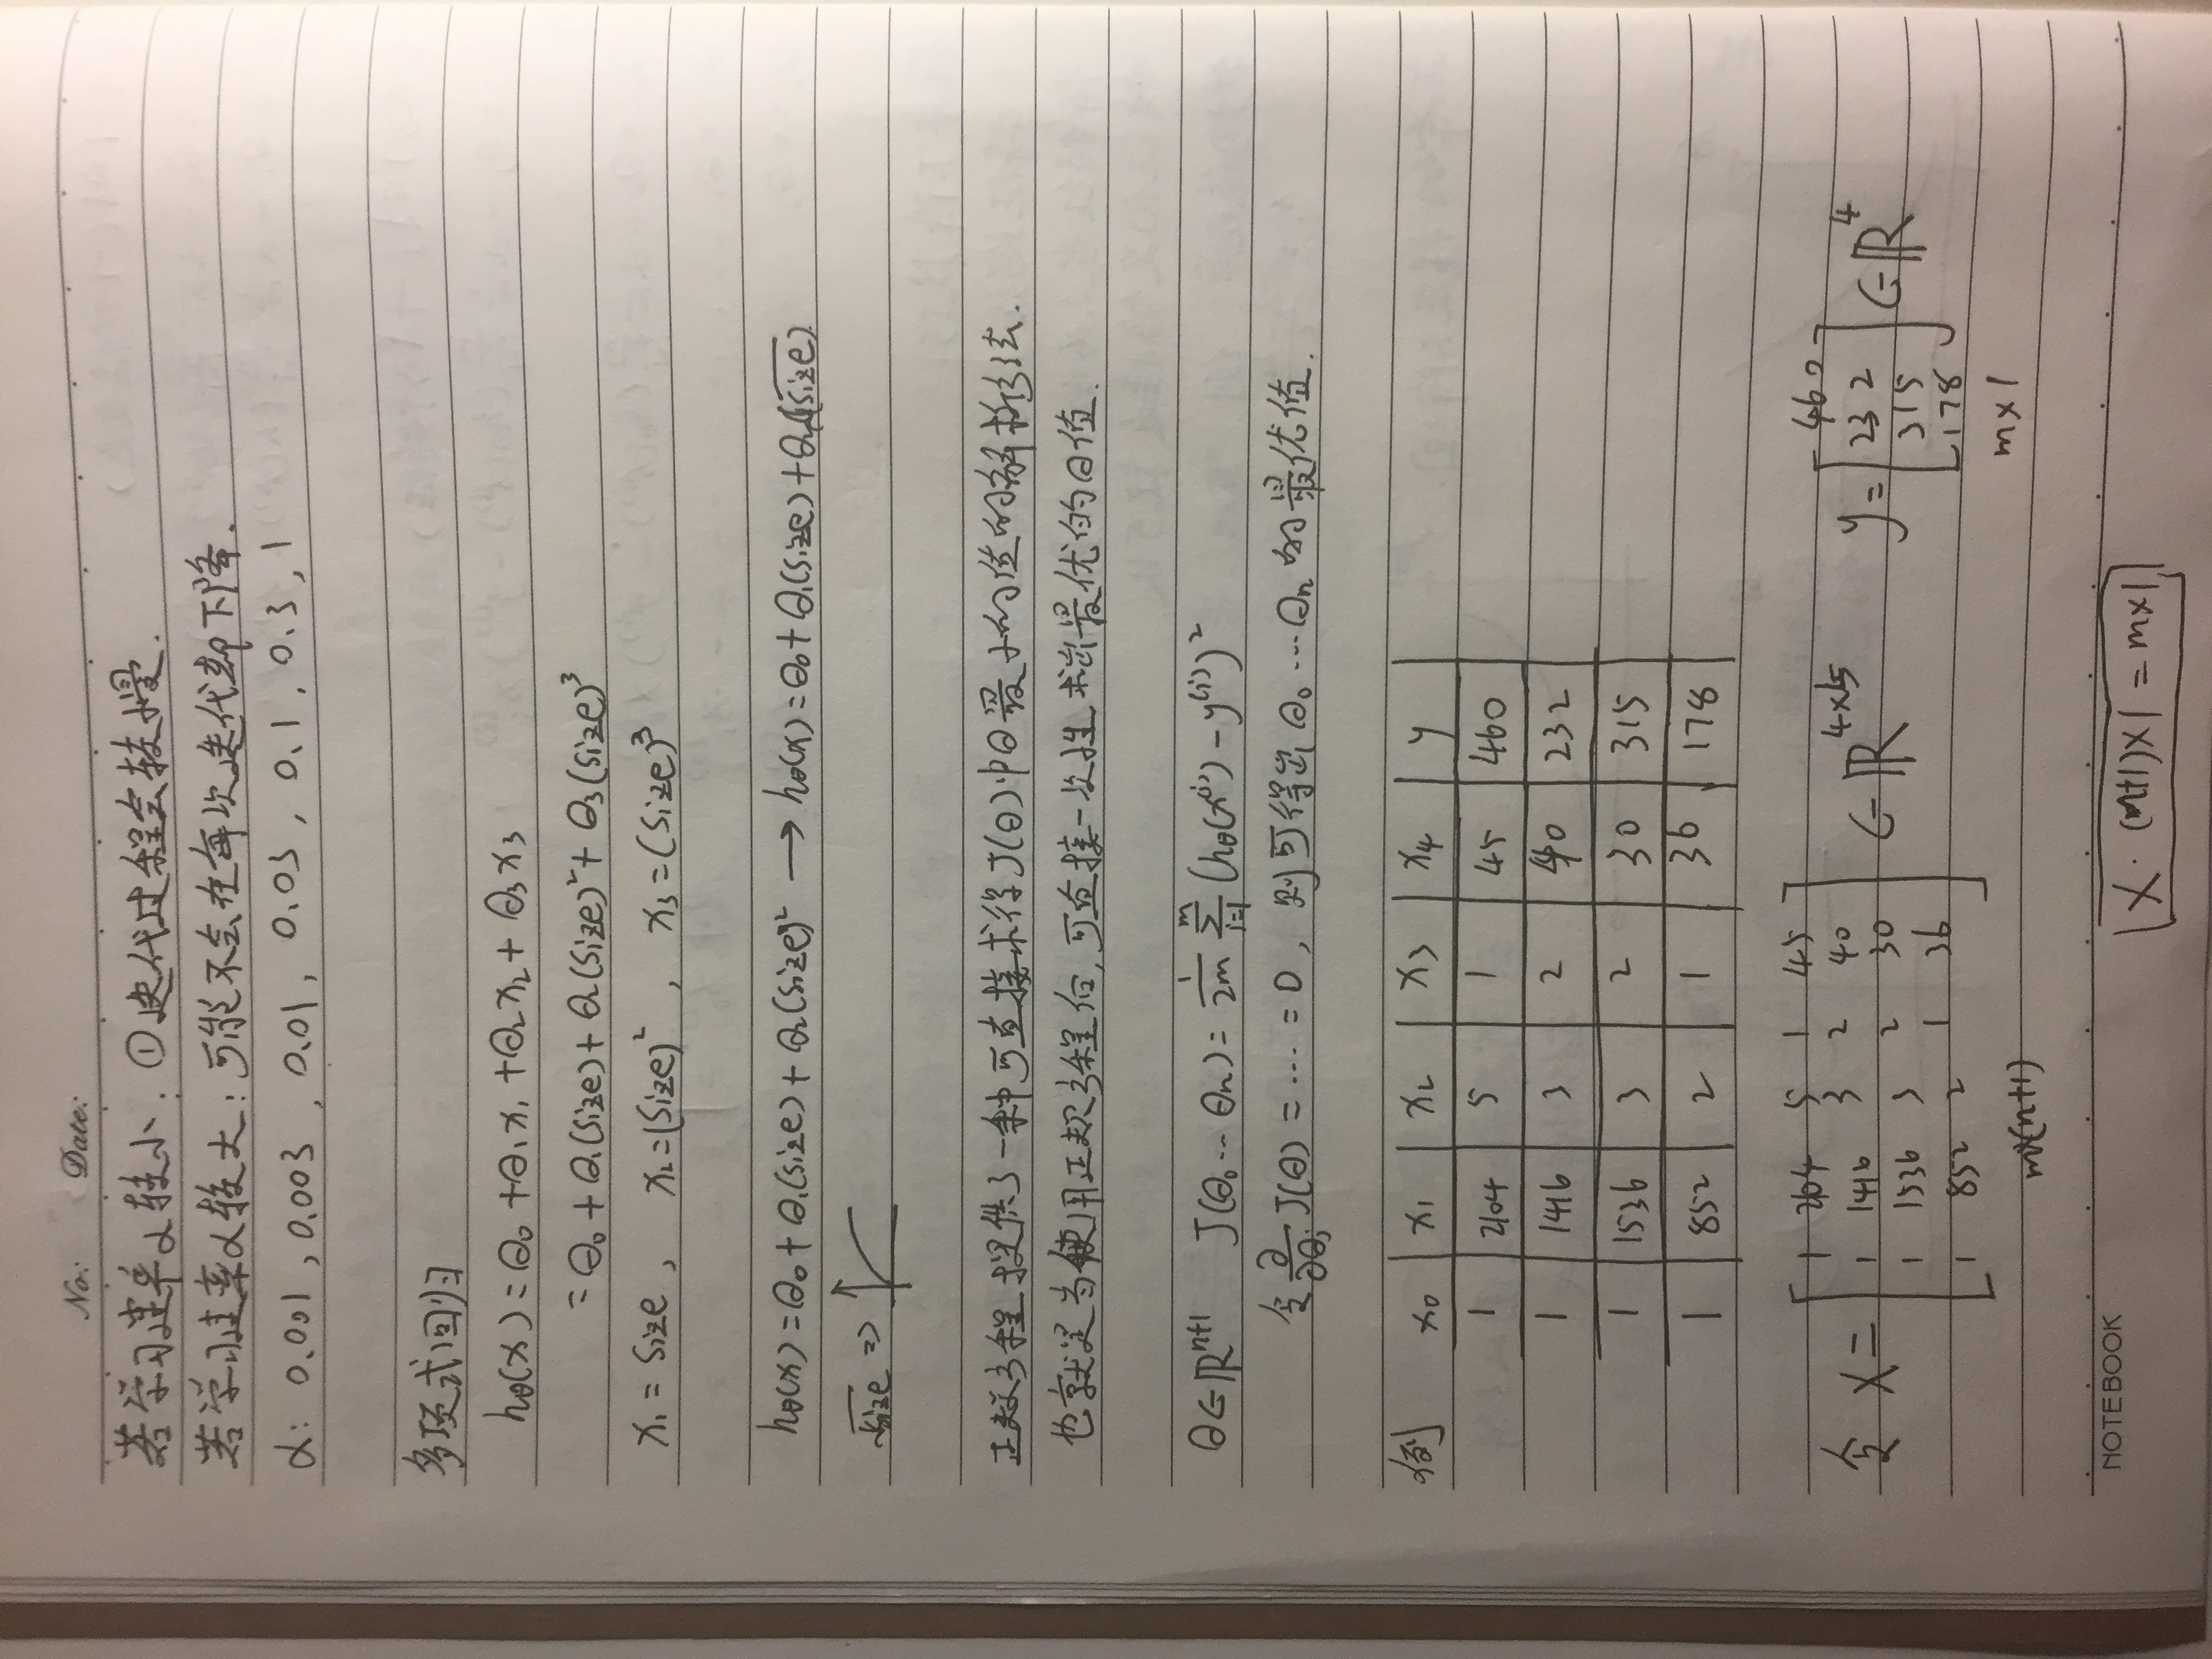 No: Date:
若学习速率α较小: ①迭代过程会较慢.
若学习速率α较大: 可能不会在每次迭代都下降.
α: 0.001, 0.003, 0.01, 0.03, 0.1, 0.3, 1
多项式回归
hθ(x) = θ₀ + θ₁x₁ + θ₂x₂ + θ₃x₃
= θ₀ + θ₁(size) + θ₂(size)² + θ₃(size)³
x₁ = size, x₂ = (size)², x₃ = (size)³
hθ(x) = θ₀ + θ₁(size) + θ₂(size)² → hθ(x) = θ₀ + θ₁(size) + θ₂√(size)
√size ⇒
正规方程提供了一种可直接求得J(θ)中θ最小的值的解析方法.
也就是当使用正规方程后, 可直接一次性求出最优的θ值.
θ∈ℝⁿ⁺¹ J(θ₀...θₙ) = 1/2m Σᵢ₌₁ᵐ (hθ(x⁽ⁱ⁾) - y⁽ⁱ⁾)²
令 ∂/∂θⱼ J(θ) = ... = 0, 则可得出 θ₀...θₙ 的最优值.
例 x₀ x₁ x₂ x₃ x₄ y
1 2104 5 1 45 460
1 1416 3 2 40 232
1 1536 3 2 30 315
1 852 2 1 36 178
令 X = [1 2104 5 1 45
1 1416 3 2 40
1 1536 3 2 30
1 852 2 1 36] ∈ ℝ⁴ˣ⁵
m×(n+1)
y = [460
232
315
178] ∈ ℝ⁴
m×1
NOTEBOOK
X · (n+1)×1 = m×1